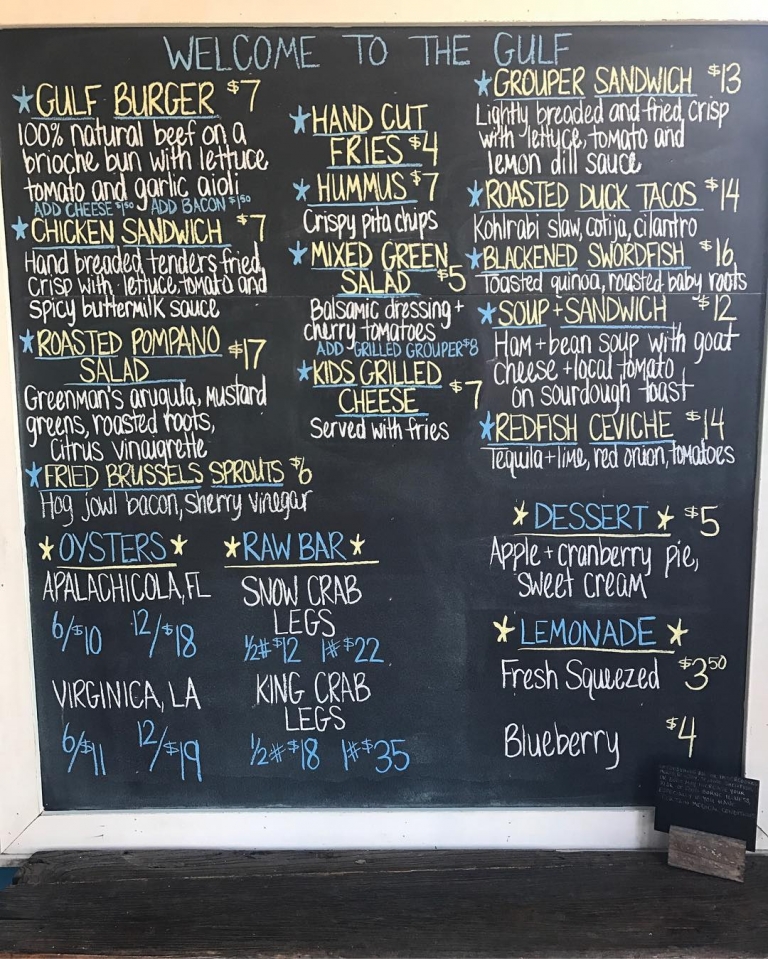 WELCOME TO THE GULF
GULF BURGER $7
100% natural beef on a
brioche bun with lettuce
tomato and garlic aioli
ADD CHEESE $1.50 ADD BACON $1.50
CHICKEN SANDWICH $7
Hand breaded tenders fried,
crisp with lettuce, tomato and
spicy buttermilk sauce
ROASTED POMPANO
SALAD $17
Greenman's arugula, mustard
greens, roasted roots,
citrus vinaigrette
FRIED BRUSSELS SPROUTS $6
Hog jowl bacon, sherry vinegar
HAND CUT
FRIES $4
HUMMUS $7
Crispy pita chips
MIXED GREEN
SALAD $5
Balsamic dressing +
cherry tomatoes
ADD GRILLED GROUPER $8
KIDS GRILLED
CHEESE $7
Served with fries
GROUPER SANDWICH $13
Lightly breaded and fried, crisp
with lettuce, tomato and
lemon dill sauce
ROASTED DUCK TACOS $14
Kohlrabi slaw, cotija, cilantro
BLACKENED SWORDFISH $16
Toasted quinoa, roasted baby roots
SOUP + SANDWICH $12
Ham + bean soup with goat
cheese + local tomato
on sourdough toast
REDFISH CEVICHE $14
Tequila + lime, red onion, tomatoes
OYSTERS
APALACHICOLA, FL
6/$10 12/$18
VIRGINICA, LA
6/$11 12/$19
RAW BAR
SNOW CRAB
LEGS
½# $12 1# $22
KING CRAB
LEGS
½# $18 1# $35
DESSERT $5
Apple + cranberry pie,
sweet cream
LEMONADE
Fresh Squeezed $3.50
Blueberry $4